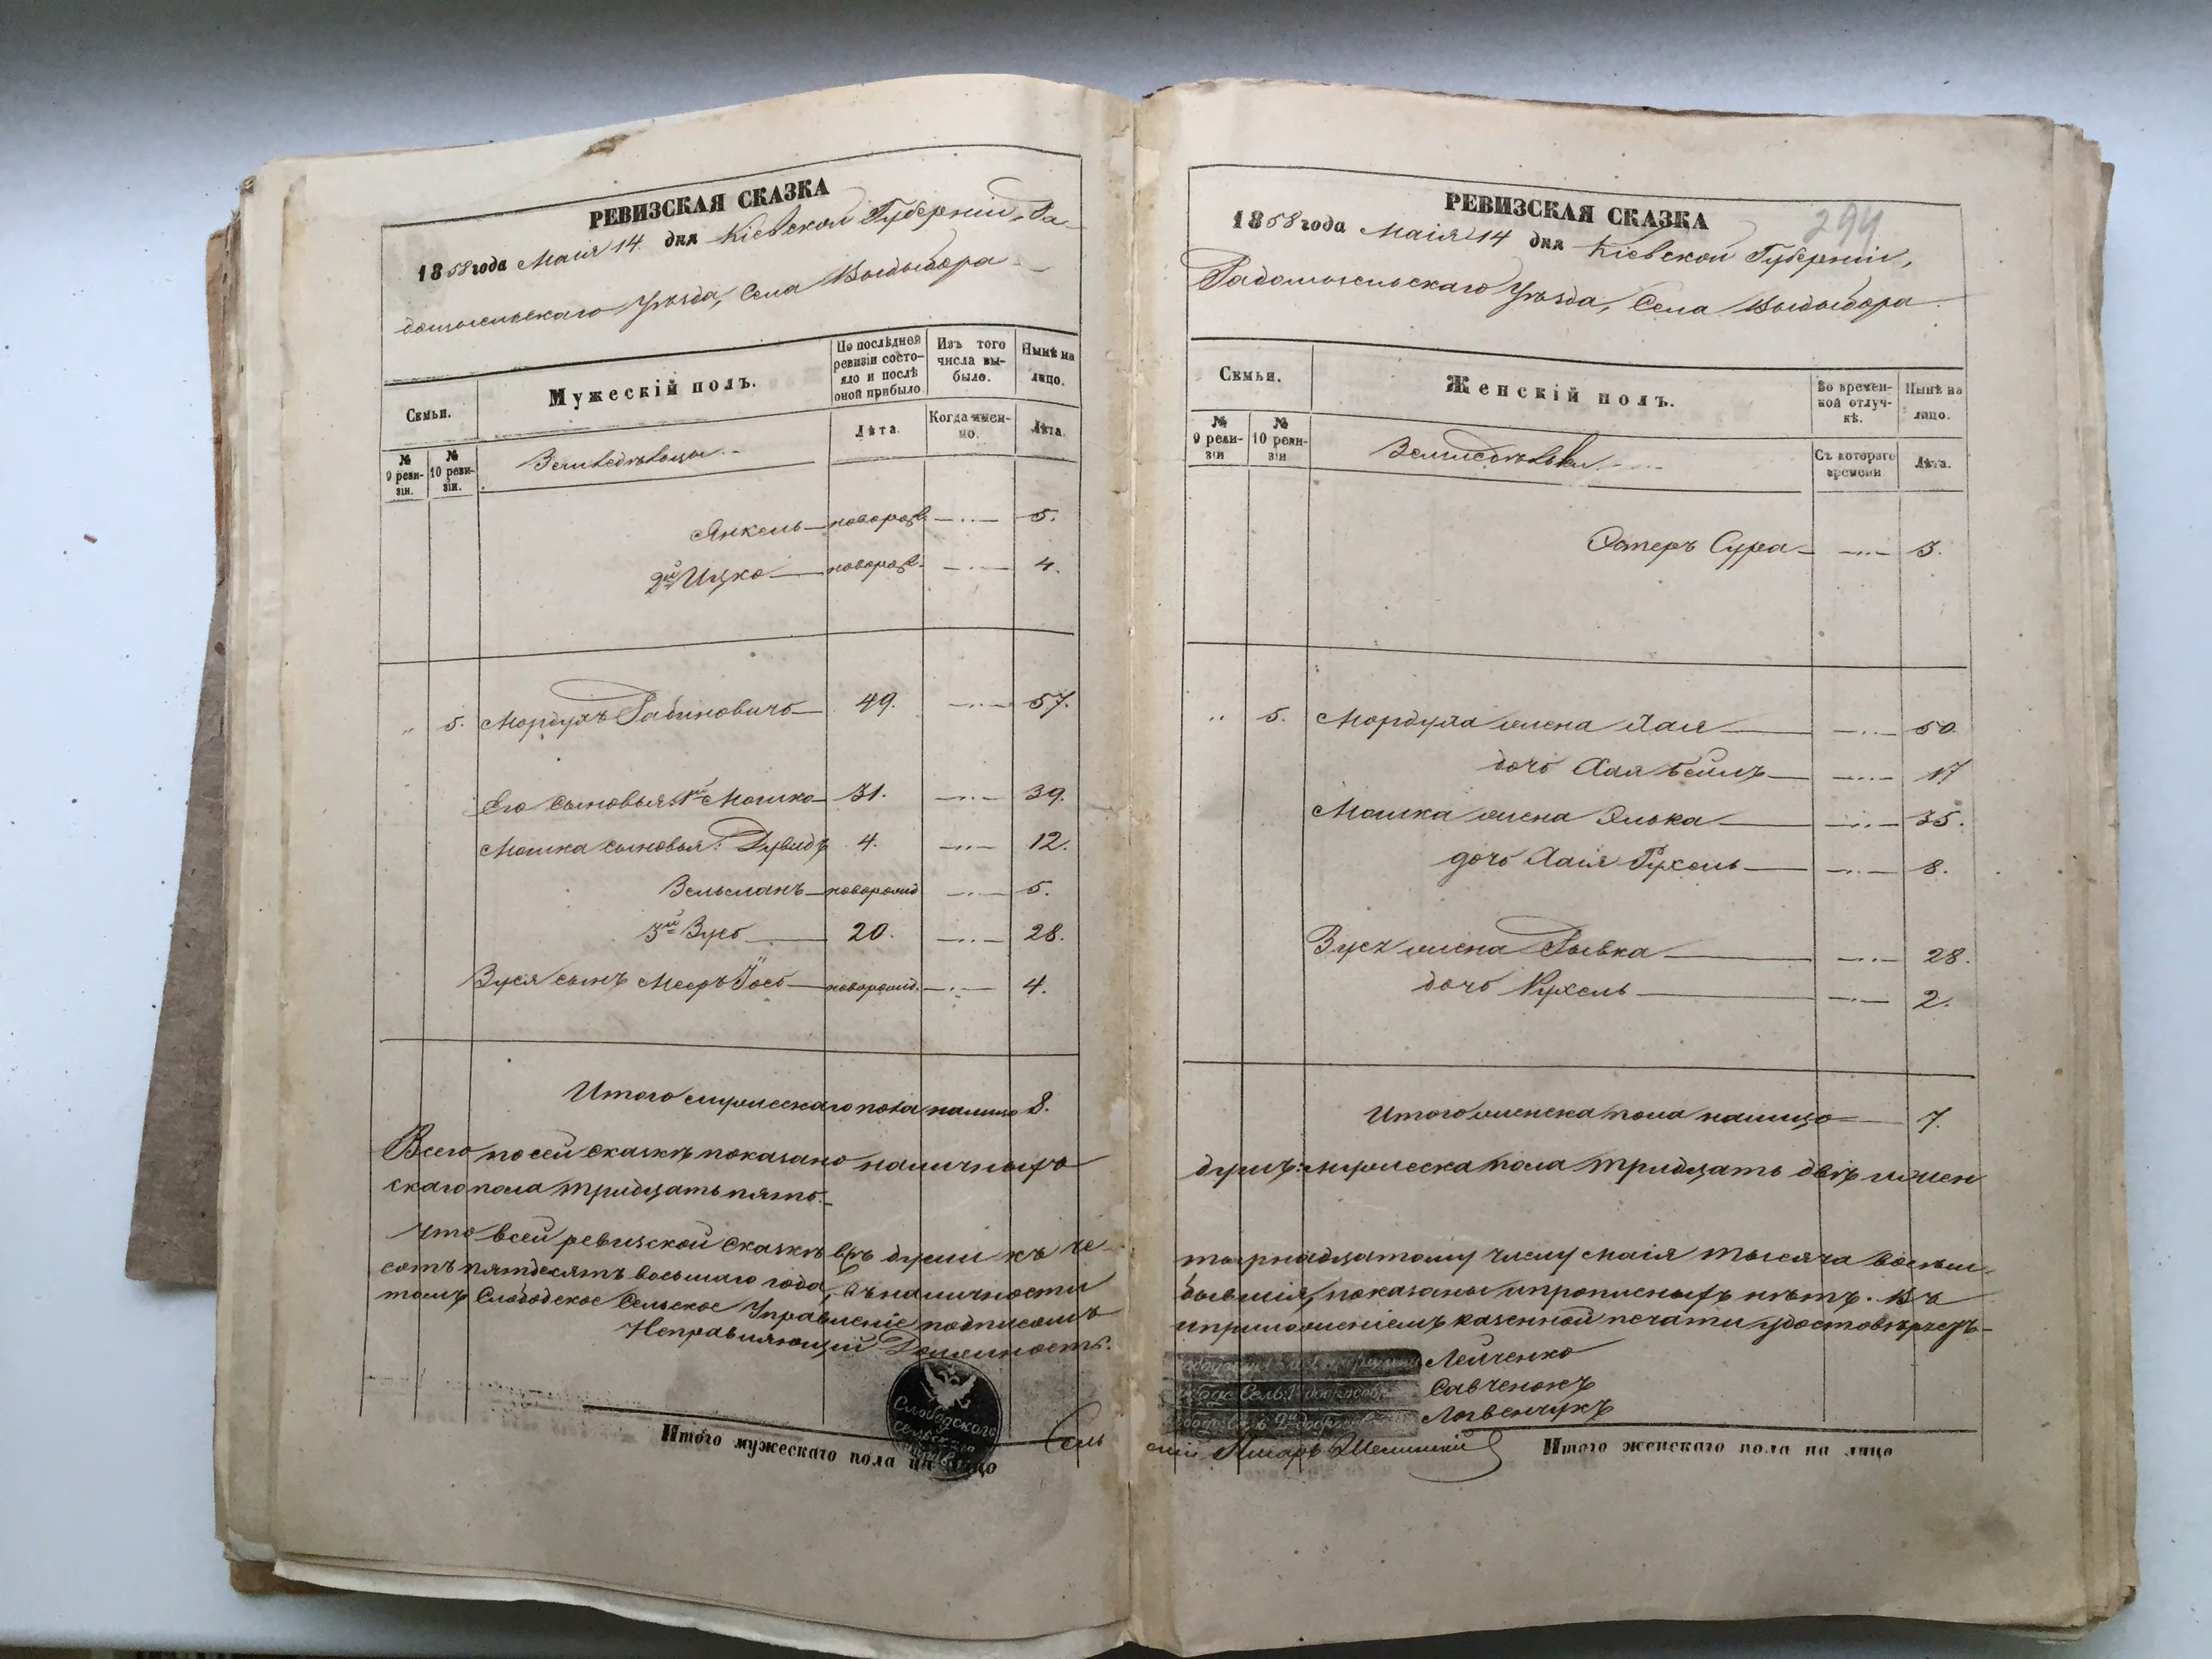 РЕВИЗСКАЯ СКАЗКА
1858 года Маія 14 дня Кіевской Губерніи, Ра-
домысльскаго Уѣзда, Села Выдыбора
Семьи.
Мужескій полъ.
По послѣдней ревизіи состояло и послѣ оной прибыло
Изъ того числа выбыло.
Нынѣ на лицо.
№ 9 ревизіи.
№ 10 ревизіи.
Земледѣльцы
Лѣта.
Когда именно.
Лѣта.
Янкель новорож 5.
2й Ицко новорож 4.
" 5. Мордухъ Рабиновичъ 49. 57.
Его сыновья 1й Мошко 31. 39.
Мошка сыновья: Дувидъ 4. 12.
новорожд 5.
3й Зусь 20. 28.
Зуся сынъ Мееръ Іось новорожд. 4.
Итого мужескаго пола налицо 8.
Всего по сей сказкѣ показано наличныхъ
скаго пола тридцать пять.
Что в сей ревизской сказкѣ всѣ души къ че-
сотъ пятдесятъ восьмаго года, въ наличности
томъ Слободское Сельское Управленіе подписомъ
Исправляющій Должность:
Слободского сельского
Итого мужескаго пола на лицо
Сель
РЕВИЗСКАЯ СКАЗКА
294
1858 года Маія 14 дня Кіевской Губерніи,
Радомысльскаго Уѣзда, Села Выдыбора
Семьи.
Женскій полъ.
Во временной отлучкѣ.
Нынѣ на лицо.
№ 9 ревизіи
№ 10 ревизіи
Съ котораго времени
Лѣта.
Эстеръ Сура 3.
" 5. Мордуха жена Хая 50
дочь Хая Бейлъ 17
Мошка жена Элька 35.
дочь Хаія Рухель 8.
жена Рывка 28.
дочь Рухель 2.
Итого женска пола налицо 7.
душъ: мужеска пола тридцать двѣ и жен
тырнадцатому числу маія тысяча восьми-
бывшія, показаны и прописныхъ нѣтъ. Въ
и приложеніемъ казенной печати удостовѣряетъ-
Лейченко
Савченокъ
Логвенчукъ
скій Писарь
Итого женскаго пола на лицо